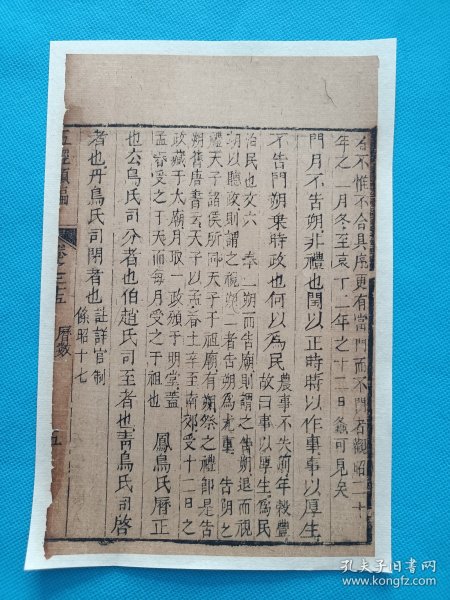 有不惟不合其序更有當門而不門者觀昭二十
年之一月冬至哀十二年之十二日螽可見矣
門月不告朔非禮也閏以正時時以作事事以厚生
不告門朔棄時政也何以為民
農事不失前年穀豐
故曰事以厚生為民
治民也文六
奉一朔而告廟則謂之告朔退而視
朔以聽政則謂之視朔一者告朔為尤重
告朔之
禮天子諸侯所同天子于祖廟有朔祭之禮即是告
朔舊唐書云天子以孟春上辛至南郊受十二日之
政藏于太廟月取一政頒于明堂蓋
孟春受之于天而每月受之于祖也
鳳鳥氏曆正
也公鳥氏司分者也伯趙氏司至者也青鳥氏司啓
者也丹鳥氏司閉者也
註詳官制
條昭十七
五經類編
卷之二十五
曆數
五
孔夫子旧书网
www.kongfz.com